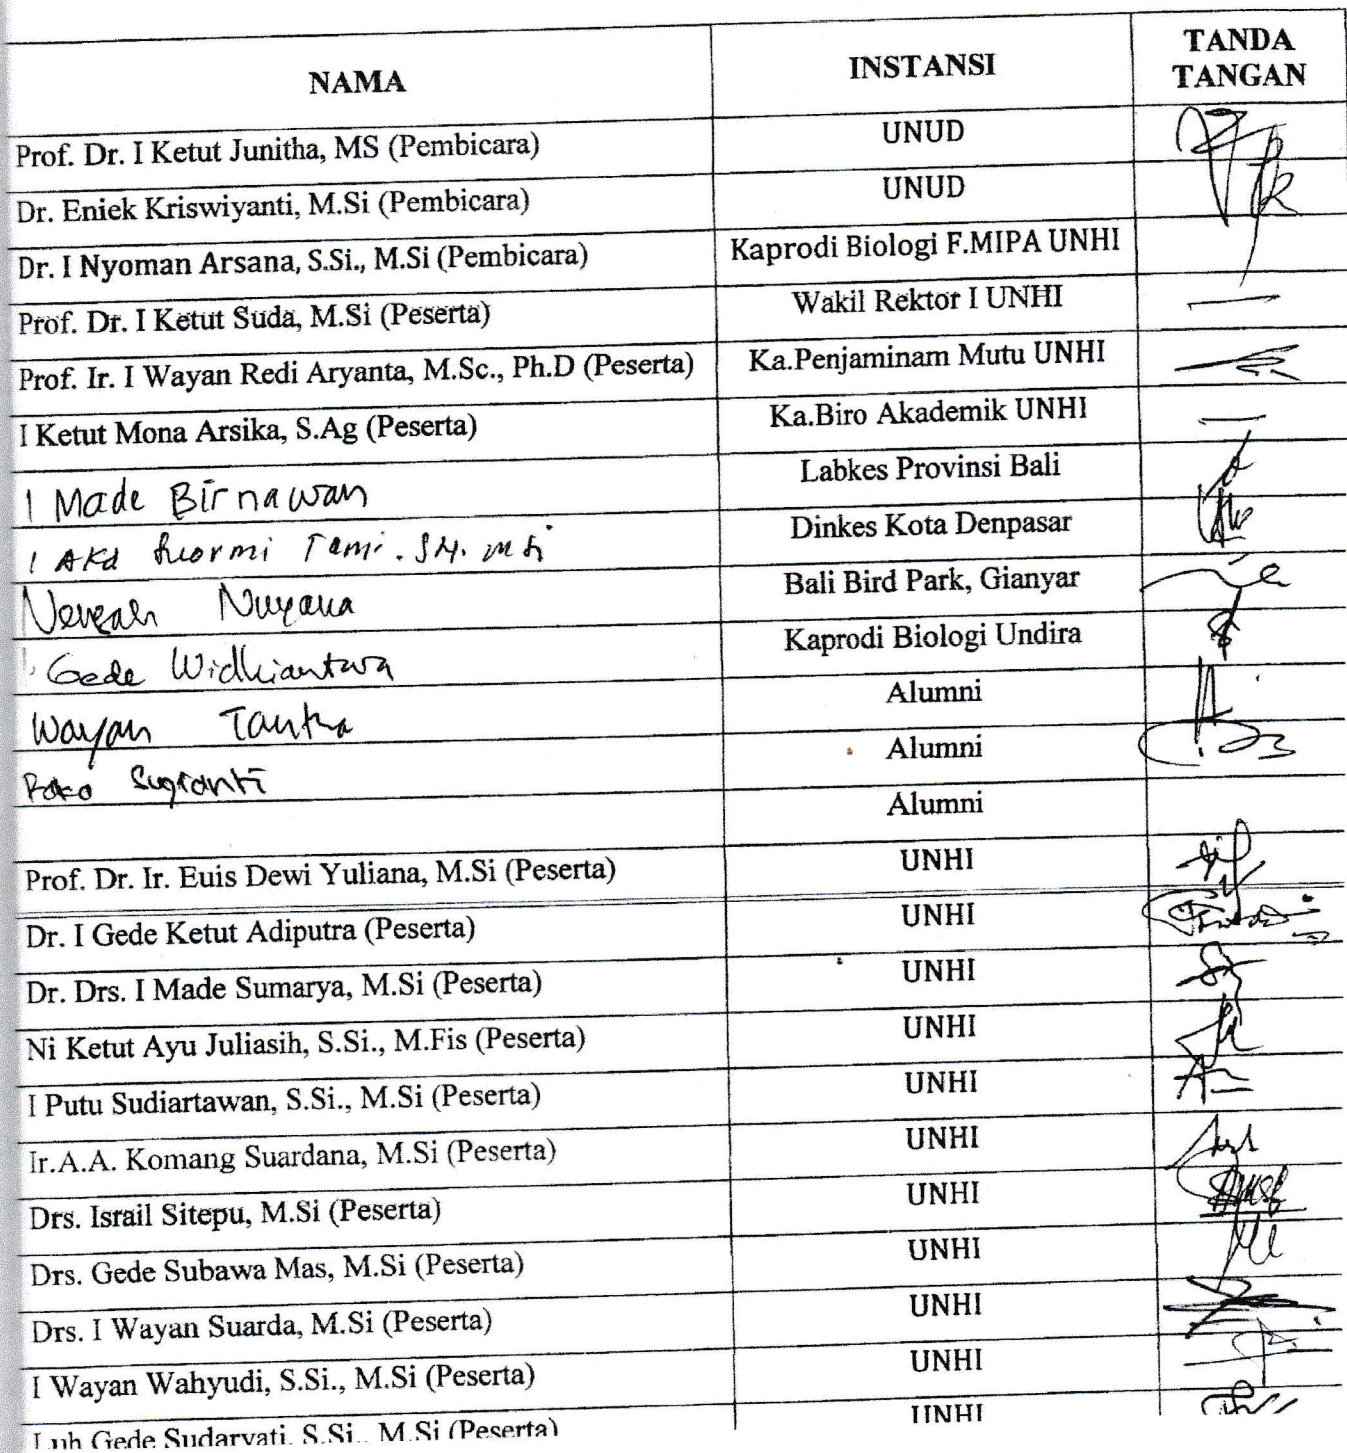 NAMA INSTANSI TANDA TANGAN
Prof. Dr. I Ketut Junitha, MS (Pembicara) UNUD
Dr. Eniek Kriswiyanti, M.Si (Pembicara) UNUD
Dr. I Nyoman Arsana, S.Si., M.Si (Pembicara) Kaprodi Biologi F.MIPA UNHI
Prof. Dr. I Ketut Suda, M.Si (Peserta) Wakil Rektor I UNHI
Prof. Ir. I Wayan Redi Aryanta, M.Sc., Ph.D (Peserta) Ka.Penjaminam Mutu UNHI
I Ketut Mona Arsika, S.Ag (Peserta) Ka.Biro Akademik UNHI
I Made Birnawan Labkes Provinsi Bali
Dinkes Kota Denpasar
Bali Bird Park, Gianyar
Gede Widhiantara Kaprodi Biologi Undira
Wayan Tantra Alumni
Sugianti Alumni
Alumni
Prof. Dr. Ir. Euis Dewi Yuliana, M.Si (Peserta) UNHI
Dr. I Gede Ketut Adiputra (Peserta) UNHI
Dr. Drs. I Made Sumarya, M.Si (Peserta) UNHI
Ni Ketut Ayu Juliasih, S.Si., M.Fis (Peserta) UNHI
I Putu Sudiartawan, S.Si., M.Si (Peserta) UNHI
Ir.A.A. Komang Suardana, M.Si (Peserta) UNHI
Drs. Israil Sitepu, M.Si (Peserta) UNHI
Drs. Gede Subawa Mas, M.Si (Peserta) UNHI
Drs. I Wayan Suarda, M.Si (Peserta) UNHI
I Wayan Wahyudi, S.Si., M.Si (Peserta) UNHI
Luh Gede Sudaryati, S.Si., M.Si (Peserta) UNHI